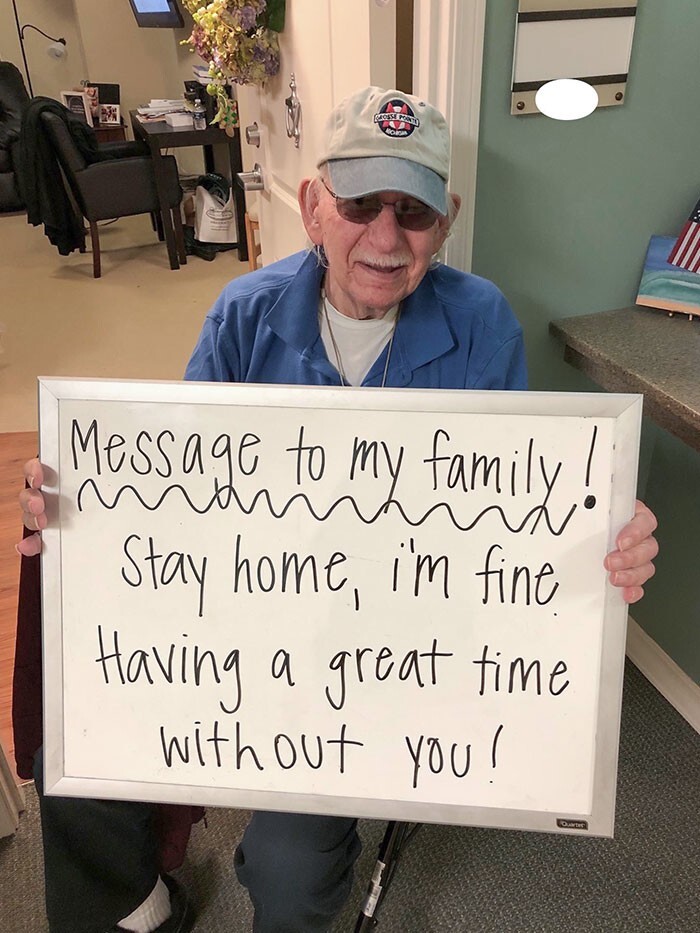 GROSSE POINTE
MICHIGAN
Message to my family!
Stay home, i'm fine.
Having a great time
without you!
Quartet